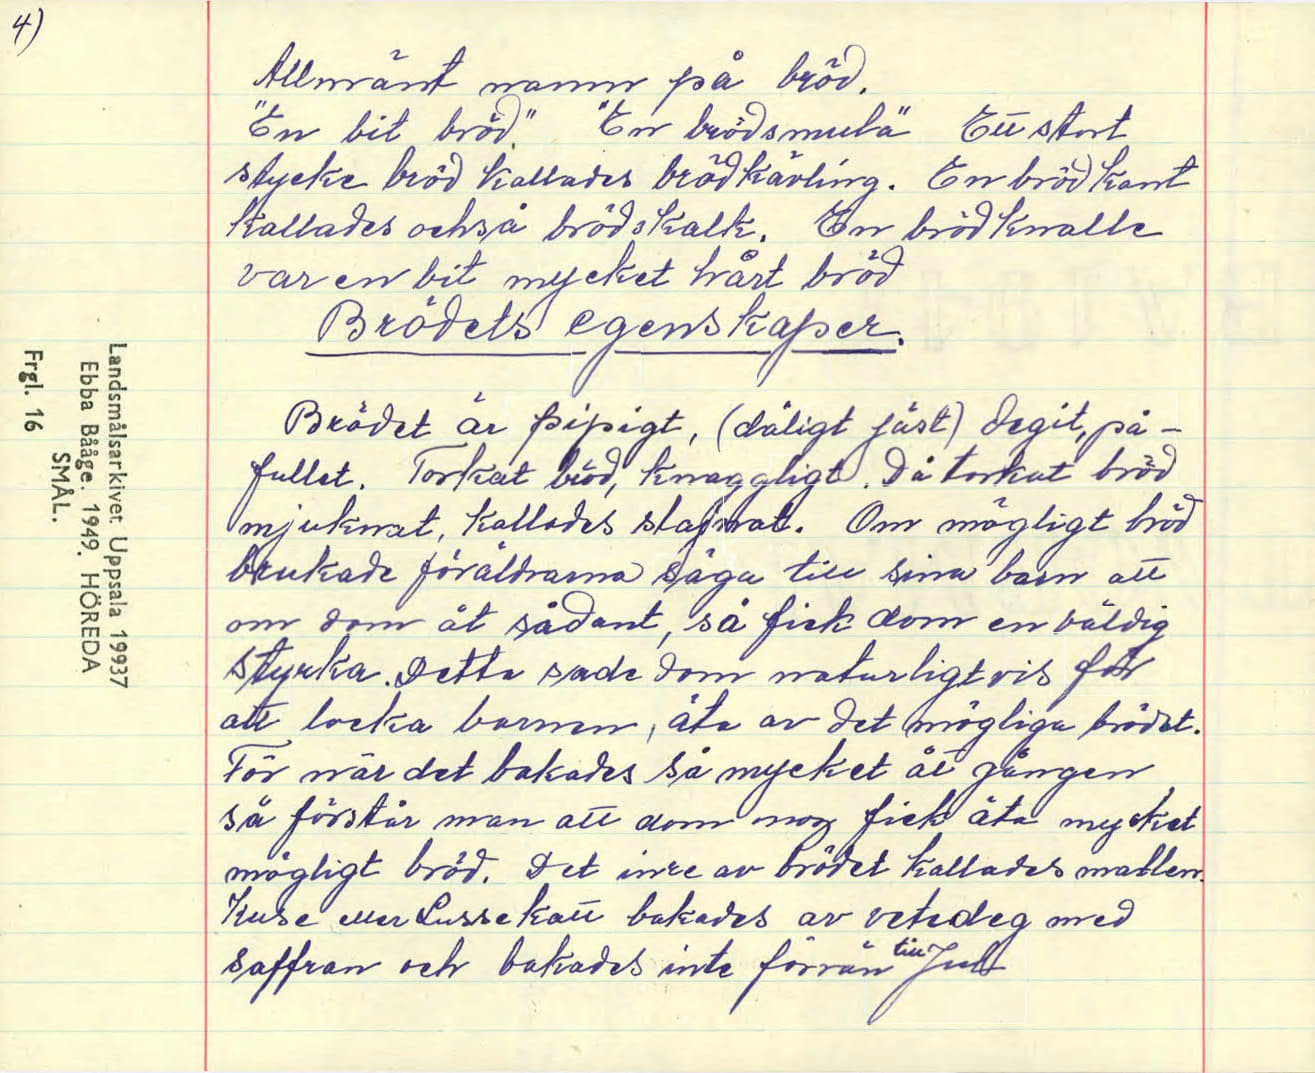 4)
Allmänt namn på bröd.
"En bit bröd" "En brödsmula" Ett stort
stycke bröd kallades brödkävling. En brödkant
kallades också brödskalk. En brödknalle
var en bit mycket hårt bröd
Brödets egenskaper.
Brödet är pipigt, (dåligt jäst) degit, på-
fullet. Torkat bröd, knaggligt. Då torkat bröd
mjuknat, kallades slajnat. Om mögligt bröd
brukade föräldrarna säga till sina barn att
om dom åt sådant, så fick dom en väldig
styrka. Detta sade dom naturligtvis för
att locka barnen, äta av det mögliga brödet.
För när det bakades så mycket åt gången
så förstår man att dom nog fick äta mycket
mögligt bröd. Det inre av brödet kallades matlen.
Kuse eller Lussekatt bakades av vetedeg med
saffran och bakades inte förrän till Jul
Landsmålsarkivet Uppsala 19937
Ebba Bååge. 1949. HÖREDA
SMÅL.
Frgl. 16